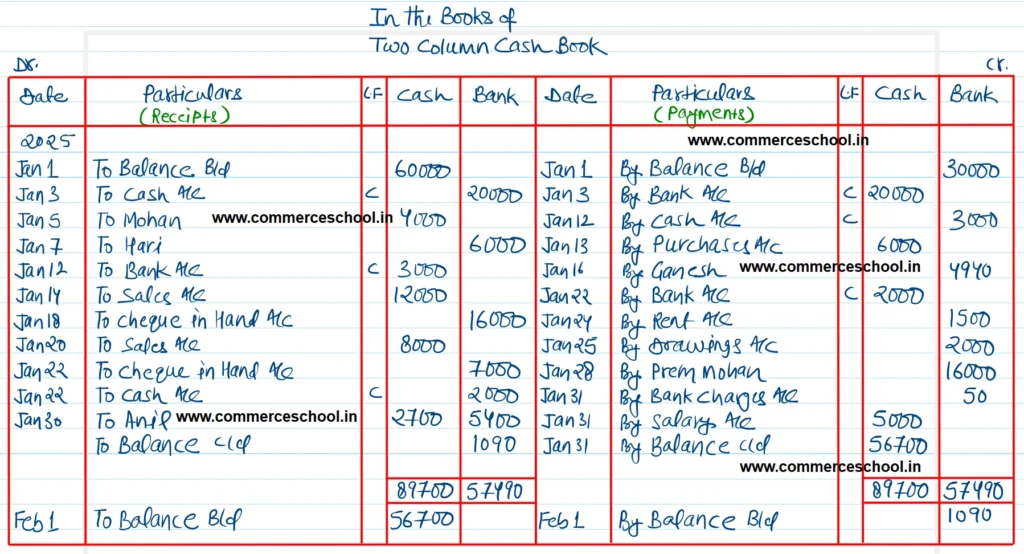 In the Books of
Two Column Cash Book
Dr. Cr.
Date Particulars LF Cash Bank Date Particulars LF Cash Bank
(Receipts) (Payments)
2025 www.commerceschool.in
Jan 1 To Balance B/d 60000 Jan 1 By Balance B/d 30000
Jan 3 To Cash A/c C 20000 Jan 3 By Bank A/c C 20000
Jan 5 To Mohan www.commerceschool.in 4000 Jan 12 By Cash A/c C 3000
Jan 7 To Hari 6000 Jan 13 By Purchases A/c 6000
Jan 12 To Bank A/c C 3000 Jan 16 By Ganesh www.commerceschool.in 4940
Jan 14 To Sales A/c 12000 Jan 22 By Bank A/c C 2000
Jan 18 To Cheque in Hand A/c 16000 Jan 24 By Rent A/c 1500
Jan 20 To Sales A/c 8000 Jan 25 By Drawings A/c 2000
Jan 22 To Cheque in Hand A/c 7000 Jan 28 By Prem Mohan 16000
Jan 22 To Cash A/c C 2000 Jan 31 By Bank Charges A/c 50
Jan 30 To Anil www.commerceschool.in 2700 5400 Jan 31 By Salary A/c 5000
To Balance c/d 1090 Jan 31 By Balance c/d 56700
www.commerceschool.in
89700 57490 89700 57490
Feb 1 To Balance B/d 56700 Feb 1 By Balance B/d 1090